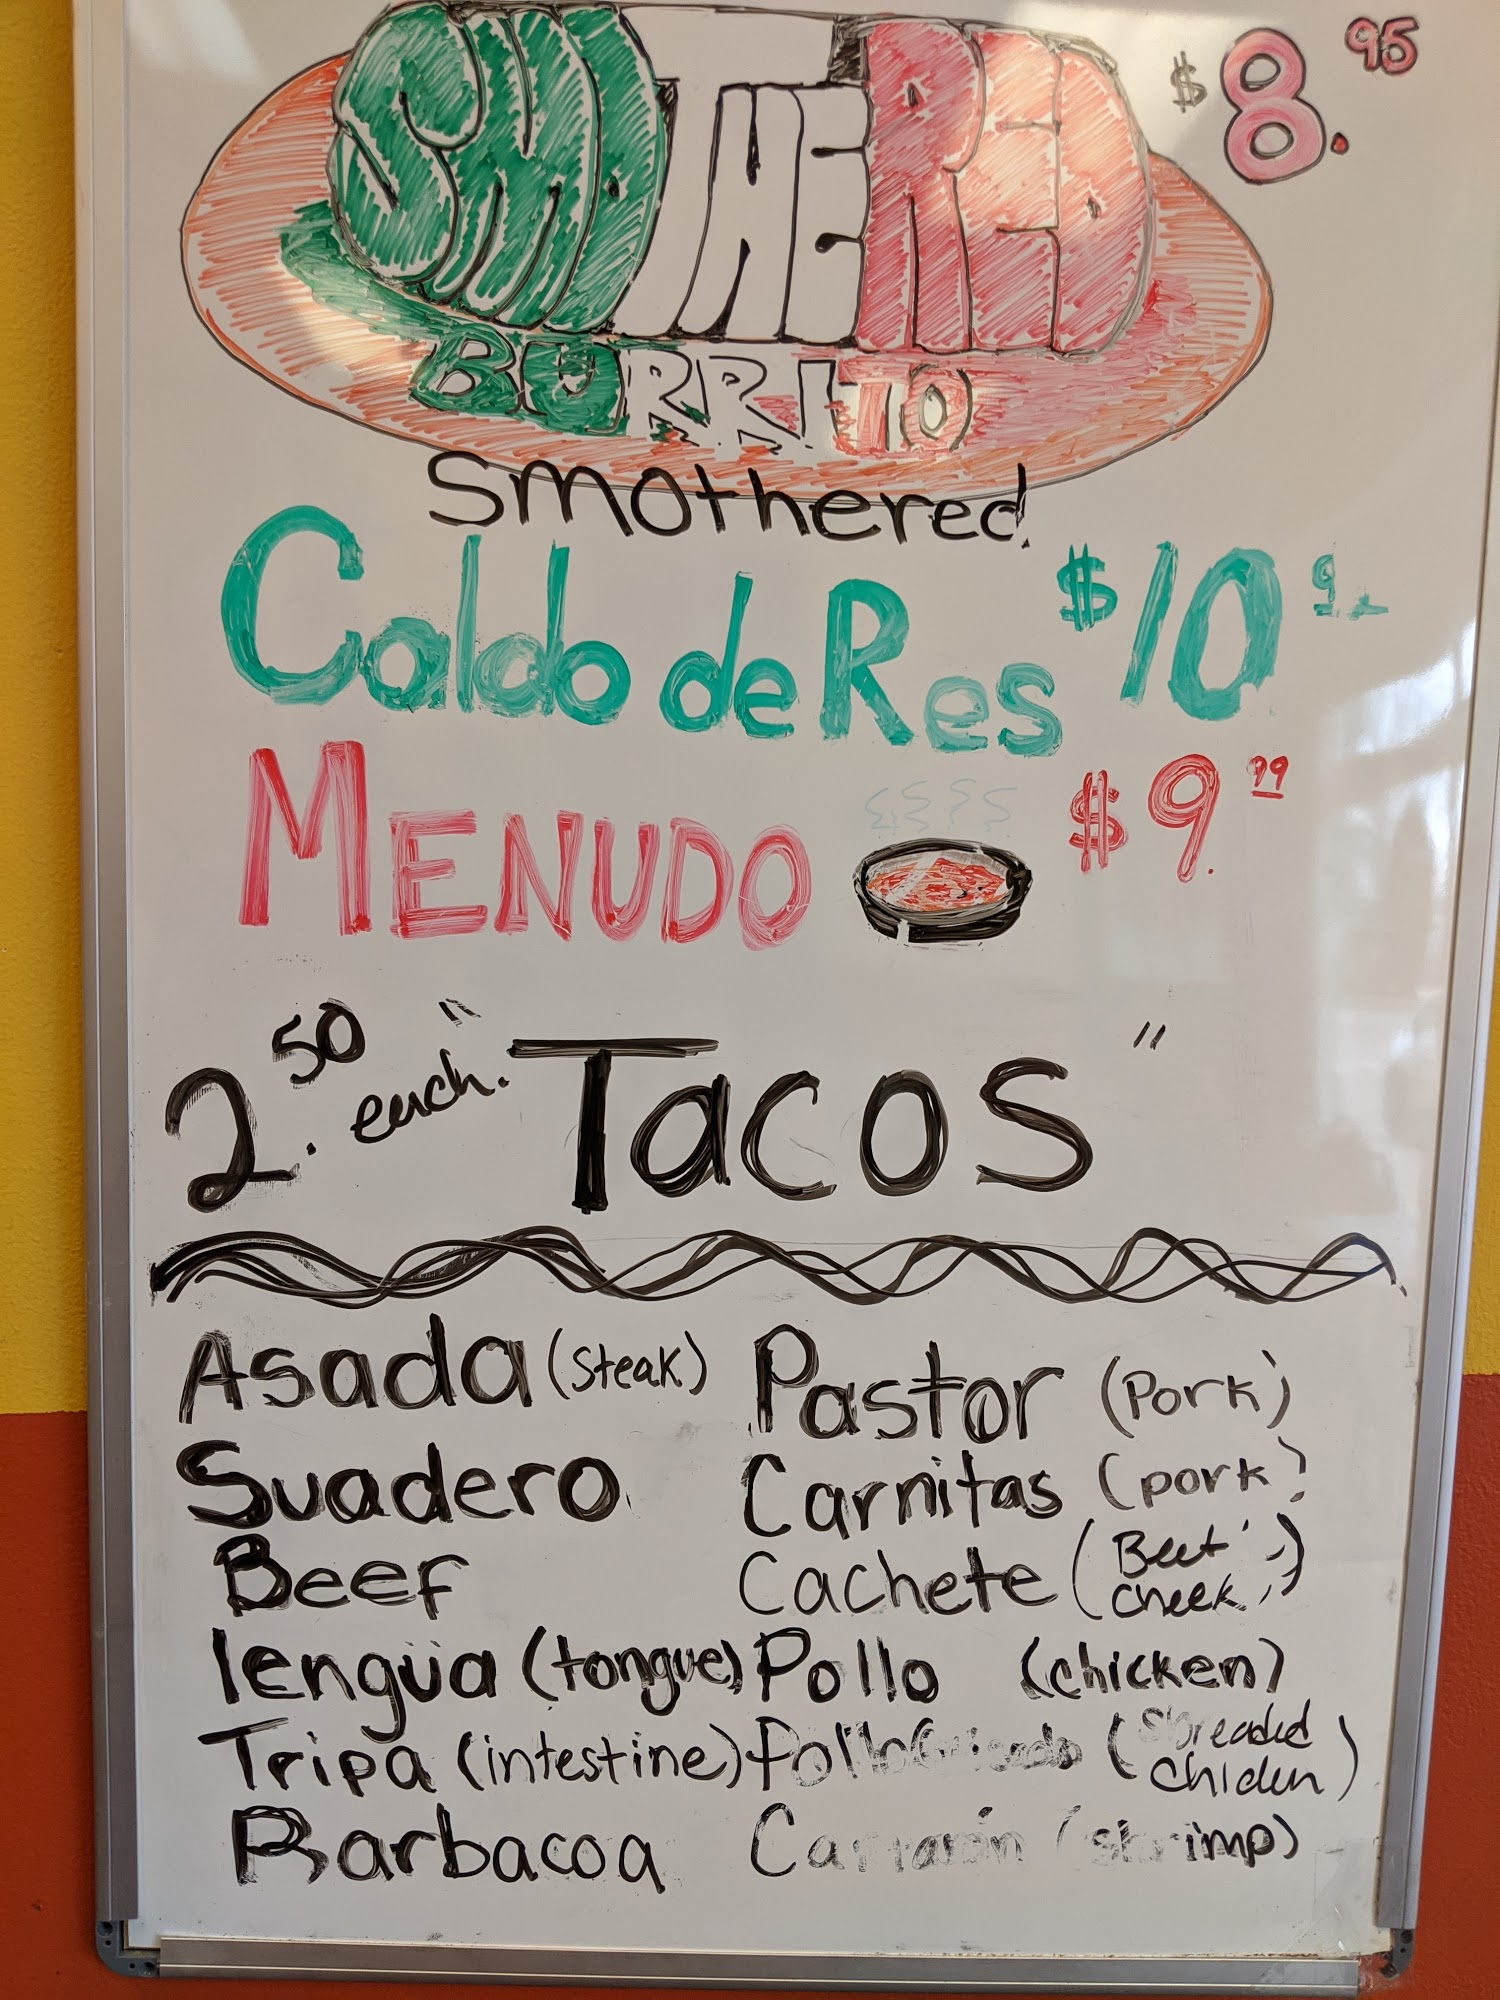 SMOTHERED $8.95
BURRITO
smothered
Caldo de Res $10
MENUDO $9.99
2.50 each. "Tacos"
Asada (steak) Pastor (Pork)
Suadero Carnitas (pork)
Beef Cachete (Beef cheek)
lengüa (tongue) Pollo (chicken)
Tripa (intestine) Pollo (Shreaded chicken)
Barbacoa (shrimp)